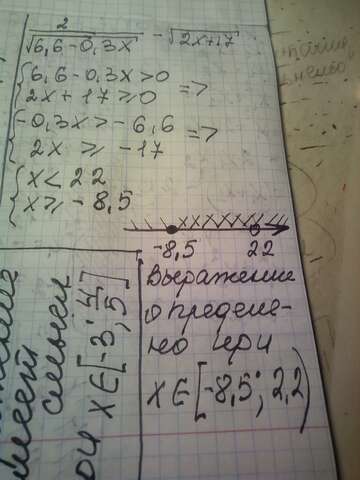 2
√6,6-0,3x - √2x+17
6,6-0,3x>0
2x+17≥0 =>
-0,3x>-6,6
2x ≥ -17 =>
x<22
x≥-8,5
-8,5 22
Выражение
определе-
но при
x∈[-8,5; 2,2)
смысл
x∈[-3; 4/5]